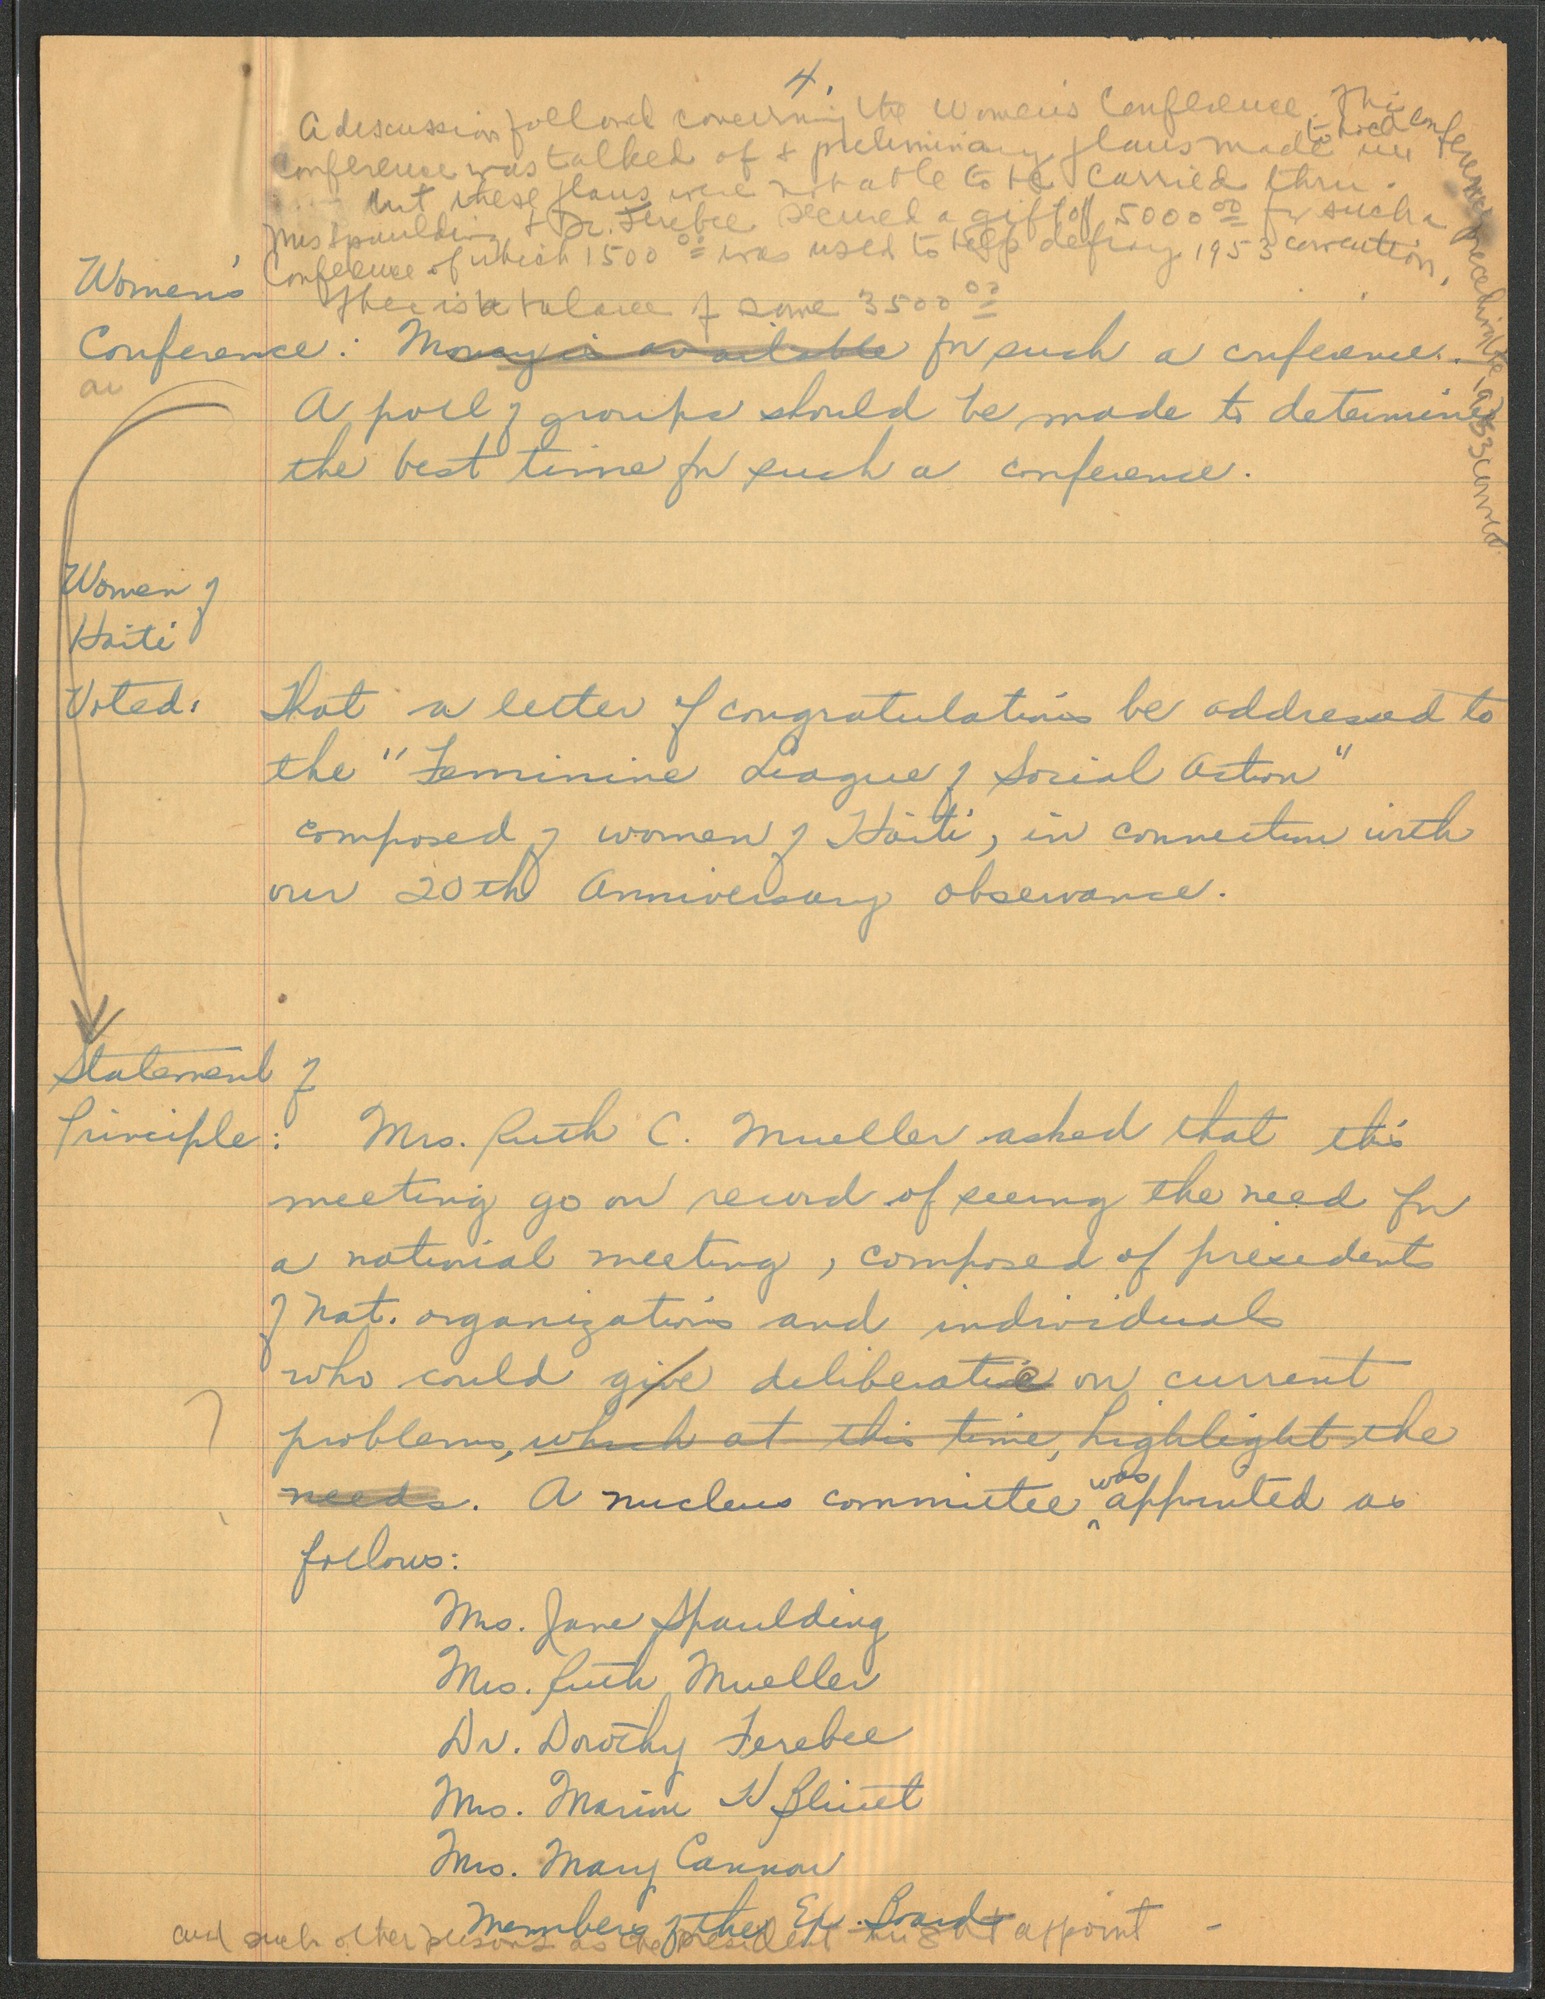 4.
A discussion followed concerning the Women's Conference. This
conference was talked of & preliminary plans made to hold conference preceding the 1953 conven
but these plans were not able to be carried thru.
Mrs Spaulding & Dr. Ferebee secured a gift of 5000 00 for such a
Conference of which 1500 00 was used to help defray 1953 convention.
There is a balance of some 3500 00
Women's
Conference: Money is available for such a conference.
A poll of groups should be made to determine
the best time for such a conference.
Women of
Haiti
Voted: That a letter of congratulations be addressed to
the "Feminine League of Social Action"
composed of women of Haiti, in connection with
our 20th Anniversary observance.
Statement of
Principle: Mrs. Ruth C. Mueller asked that this
meeting go on record of seeing the need for
a national meeting, composed of presidents
of Nat. organizations and individuals
who could give deliberate on current
problems, which at this time, highlight the
needs. A nucleus committee was appointed as
follows:
Mrs. Jane Spaulding
Mrs. Ruth Mueller
Dr. Dorothy Ferebee
Mrs. Marion H
Mrs. Mary Cannon
Members of the Ex. Board
and such other persons as the President might appoint -